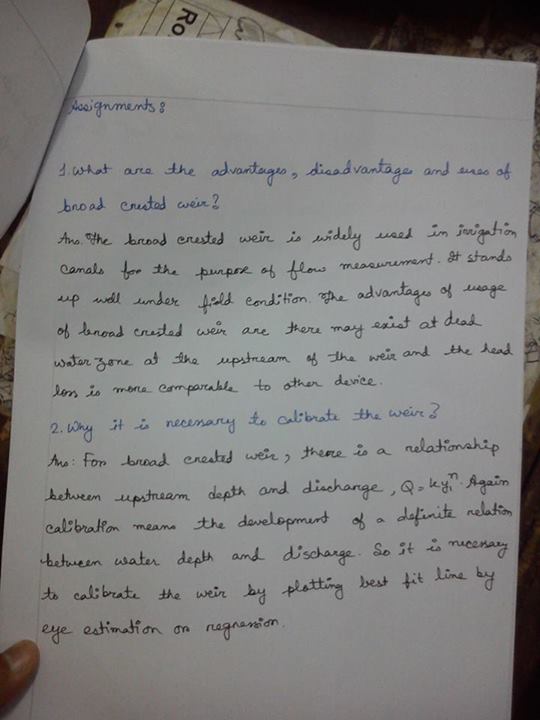 Ro
Assignments:
1. What are the advantages, disadvantages and uses of
broad crested weir?
Ans. The broad crested weir is widely used in irrigation
canals for the purpose of flow measurement. It stands
up well under field condition. The advantages of usage
of broad crested weir are there may exist at dead
water zone at the upstream of the weir and the head
loss is more comparable to other device.
2. Why it is necessary to calibrate the weir?
Ans: For broad crested weir, there is a relationship
between upstream depth and discharge, Q = ky₁ⁿ. Again
calibration means the development of a definite relation
between water depth and discharge. So it is necessary
to calibrate the weir by plotting best fit line by
eye estimation or regression.